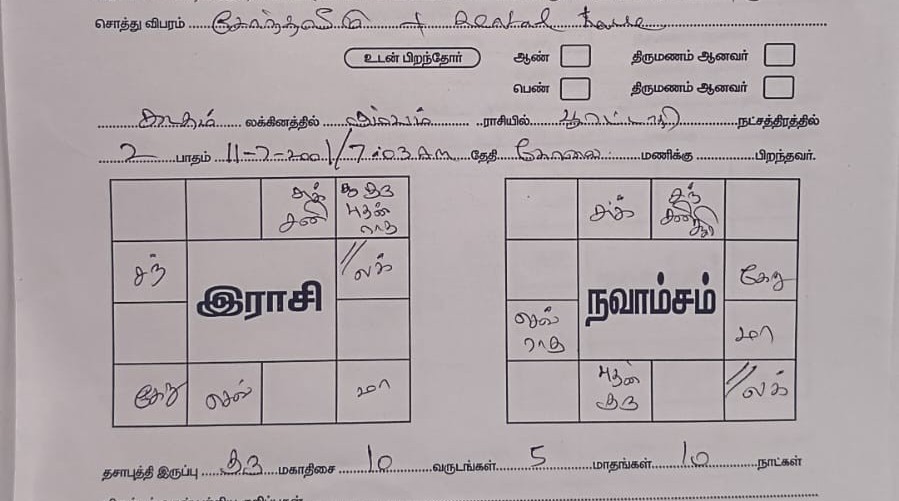 சொத்து விபரம் சொந்தவீடு + Rental house
உடன் பிறந்தோர் ஆண் திருமணம் ஆனவர்
பெண் திருமணம் ஆனவர்
கடகம் லக்கினத்தில் கும்பம் ராசியில் பூரட்டாதி நட்சத்திரத்தில்
2 பாதம் 11-7-2001/7.03 A.m தேதி காலை மணிக்கு பிறந்தவர்.
சுக் சனி
சூ குரு புதன் ராகு
சந்
// லக்
இராசி
கேது செவ் மா
சுக்
சந் சனி சூரி
நவாம்சம்
கேது
செவ் ராகு
மா
புதன் குரு
// லக்
தசாபுத்தி இருப்பு குரு மகாதிசை 10 வருடங்கள் 5 மாதங்கள் 10 நாட்கள்